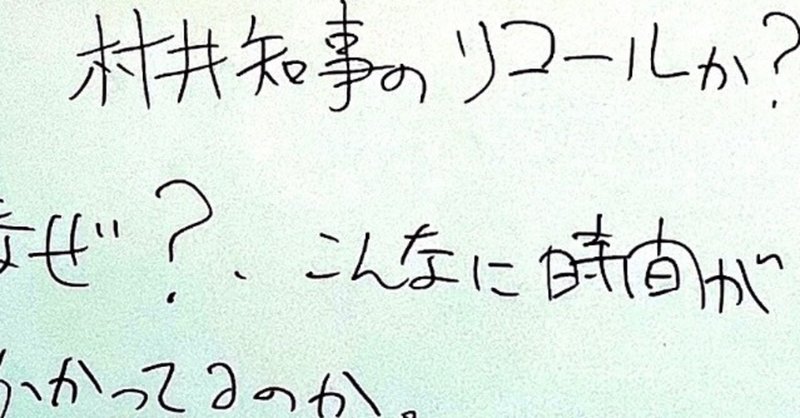 村井知事のリコールか?
なぜ?、こんなに時間が
かかってるのか。